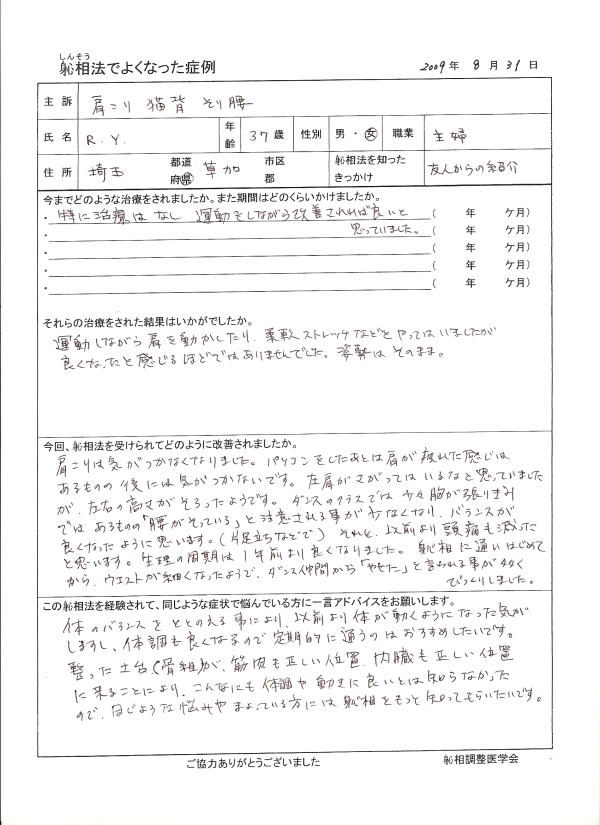 しんそう
躰相法でよくなった症例 2009年 8月 31日
主訴 肩こり 猫背 そり腰
氏名 R.Y. 年齢 37歳 性別 男・女 職業 主婦
住所 埼玉 都道府県 草加 市区郡 躰相法を知ったきっかけ 友人からの紹介
今までどのような治療をされましたか。また期間はどのくらいかけましたか。
・特に治療は なし 運動をしながら改善されれば良いと ( 年 ケ月)
・思っていました。 ( 年 ケ月)
・ ( 年 ケ月)
・ ( 年 ケ月)
・ ( 年 ケ月)
それらの治療をされた結果はいかがでしたか。
運動しながら肩を動かしたり、柔軟ストレッチなどをやってはいましたが
良くなったと感じるほどではありませんでした。姿勢はそのまま。
今回、躰相法を受けられてどのように改善されましたか。
肩こりは気がつかなくなりました。パソコンをしたあとは肩が疲れた感じは
あるものの 後には気がつかないです。左肩がさがってはいるなと思っていました
が、左右の高さがそろったようです。ダンスのクラスでは少々胸が張りぎみ
ではあるものの「腰がそっている」と注意される事が少なくなり、バランスが
良くなったように思います。(片足立ちなどで) それと、以前より頭痛も減った
と思います。生理の周期は1年前より良くなりました。躰相に通いはじめて
から、ウエストが細くなったようで、ダンス仲間から「やせた」と言われる事が多く
びっくりしました。
この躰相法を経験されて、同じような症状で悩んでいる方に一言アドバイスをお願いします。
体のバランスをととのえる事により、以前より体が動くようになった気が
しますし、体調も良くなるので定期的に通うのはおすすめしたいです。
整った土台(骨組)が、筋肉も正しい位置、内臓も正しい位置
に来ることにより、こんなにも体調や動きに良いとは知らなかった
ので、同じような悩みやまよっている方には躰相をもっと知ってもらいたいです。
ご協力ありがとうございました 躰相調整医学会